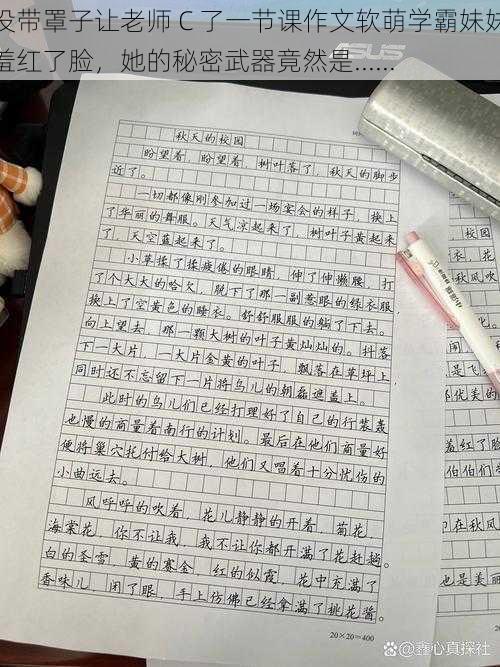 没带罩子让老师C了一节课作文软萌学霸妹妹
羞红了脸，她的秘密武器竟然是……
ASUS
秋天的校园
盼望着，盼望着，树叶落了，秋天的脚步
近了。
一切都像刚参加过一场宴会的样子，换上
了华丽的舞服。天气凉起来了，树叶子黄起来
了，天空蓝起来了。
小草揉了揉疲倦的眼睛，伸了伸懒腰，打
了个大大的哈欠，脱下了那一副葱眼的绿衣服，
换上了空黄色的睡衣。舒舒服服的躺了下去。
向上望去，那一颗大树的叶子黄灿灿的。抖落
下一大片，一大片金黄的叶子，飘落在草坪上
同时还不忘留下一片将鸟儿的朝磊遮盖上。
此时的鸟儿们已经打理好了自己的行装轰
也慢的商量着南行的计划。最后在他们商量好
便将巢穴托付给大树，他们又唱着十分忧伤的
小曲远去。
风呼呼的吹着，花儿静静的开着，菊花，
海棠花，你不让我，我不让你都开满了花赶趟。
白的圣雪，黄的赛金，红的似霞，花中充满了
香味儿，闭了眼，手上仿佛已经拿满了桃花酱。
20×20=400
，校园
衣，花
秋风吹
是飞
怀优美的
着红了脸
伯伯们
在秋风
也是美丽
鑫心真探社